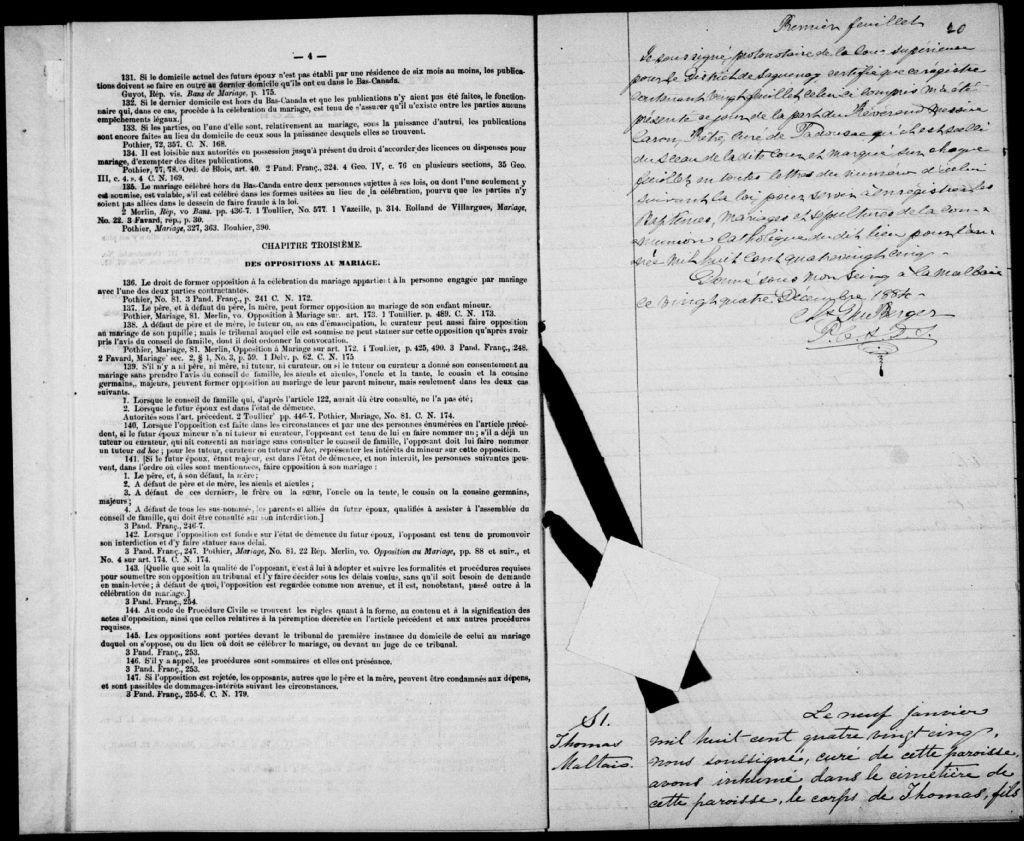 — 4 —
131. Si le domicile actuel des futurs époux n'est pas établi par une résidence de six mois au moins, les publica-
tions doivent se faire en outre au dernier domicile qu'ils ont eu dans le Bas-Canada.
Guyot, Rép. vis. Bans de Mariage, p. 175.
132. Si le dernier domicile est hors du Bas-Canada et que les publications n'y aient pas été faites, le fonction-
naire qui, dans ce cas, procède à la célébration du mariage, est tenu de s'assurer qu'il n'existe entre les parties aucuns
empêchements légaux.]
133. Si les parties, ou l'une d'elle sont, relativement au mariage, sous la puissance d'autrui, les publications
sont encore faites au lieu du domicile de ceux sous la puissance desquels elles se trouvent.
Pothier, 72, 357. C. N. 168.
134. Il est loisible aux autorités en possession jusqu'à présent du droit d'accorder des licences ou dispenses pour
mariage, d'exempter des dites publications.
Pothier, 77, 78. Ord. de Blois, art. 40. 2 Pand. Franç., 324. 4 Geo. IV, c. 76 en plusieurs sections, 35 Geo.
III, c. 4. s. 4 C. N. 169.
135. Le mariage célébré hors du Bas-Canda entre deux personnes sujettes à ses lois, ou dont l'une seulement y
est soumise, est valable, s'il est célébré dans les formes usitées au lieu de la célébration, pourvu que les parties n'y
soient pas allées dans le dessein de faire fraude à la loi.
2 Merlin, Rép, vo Bans. pp. 436-7. 1 Toullier, No. 577. 1 Vazeille, p. 314. Rolland de Villargues, Mariage,
No. 22. 3 Favard, rép., p. 30.
Pothier, Mariage, 327, 363. Bouhier, 390.
CHAPITRE TROISIÈME.
DES OPPOSITIONS AU MARIAGE.
136. Le droit de former opposition à la célébration du mariage appartient à la personne engagée par mariage
avec l'une des deux parties contractantes.
Pothier, No. 81. 3 Pand. Franç., p. 241 C. N. 172.
137. Le père, et à défaut du père, la mère, peut former opposition au mariage de son enfant mineur.
Pothier, Mariage, 81. Merlin, vo. Opposition à Mariage sur. art. 173. 1 Toullier, p. 489. C. N. 173.
138. A défaut de père et de mère, le tuteur ou, au cas d'émancipation, le curateur peut aussi faire opposition
au mariage de son pupille ; mais le tribunal auquel elle est soumise ne peut statuer sur cette opposition qu'après avoir
pris l'avis du conseil de famille, dont il doit ordonner la convocation.
Pothier, Mariage, 81. Merlin, Opposition à Mariage sur art. 172. 1 Toulier, p. 425, 490. 3 Pand. Franç., 248.
2 Favard, Mariage sec. 2, § 1, No. 3, p. 59. 1 Delv. p. 62. C. N. 175
139. S'il n'y a ni père, ni mère, ni tuteur, ni curateur, ou si le tuteur ou curateur a donné son consentement au
mariage sans prendre l'avis du conseil de famille, les aïeuls et aïeules, l'oncle et la tante, le cousin et la cousine
germains, majeurs, peuvent former opposition au mariage de leur parent mineur, mais seulement dans les deux cas
suivants.
1. Lorsque le conseil de famille qui, d'après l'article 122, aurait dû être consulté, ne l'a pas été ;
2. Lorsque le futur époux est dans l'état de démence.
Autorités sous l'art. précédent. 2 Toullier pp. 446-7. Pothier, Mariage, No. 81. C. N. 174.
140. Lorsque l'opposition est faite dans les circonstances et par une des personnes énumérées en l'article précé-
dent, si le futur époux mineur n'a ni tuteur ni curateur, l'opposant est tenu de lui en faire nommer un ; s'il a déjà un
tuteur ou curateur, qui ait consenti au mariage sans consulter le conseil de famille, l'opposant doit lui faire nommer
un tuteur ad hoc ; pour les tuteur, curateur ou tuteur ad hoc, représenter les intérêts du mineur sur cette opposition.
141. [Si le futur époux, étant majeur, est dans l'état de démence, et non interdit, les personnes suivantes peu-
vent, dans l'ordre où elles sont mentionnées, faire opposition à son mariage :
1. Le père, et, à son défaut, la mère ;
2. A défaut de père et de mère, les aïeuls et aïeules ;
3. A défaut de ces derniers, le frère ou la sœur, l'oncle ou la tente, le cousin ou la cousine germains,
majeurs ;
4. A défaut de tous les sus-nommés, les parents et alliés du futur époux, qualifiés à assister à l'assemblée du
conseil de famille, qui doit être consulté sur son interdiction.]
3 Pand. Franç., 246-7.
142. Lorsque l'opposition est fondée sur l'état de démence du futur époux, l'opposant est tenu de promouvoir
son interdiction et d'y faire statuer sans délai.
3 Pand. Franç., 247. Pothier, Mariage, No. 81. 22 Rép. Merlin, vo. Opposition au Mariage, pp. 88 et suiv., et
No. 4 sur art. 174. C. N. 174.
143. [Quelque soit la qualité de l'opposant, c'est à lui à adopter et suivre les formalités et procédures requises
pour soumettre son opposition au tribunal et l'y faire décider sous les délais voulus, sans qu'il soit besoin de demande
en main-levée ; à défaut de quoi, l'opposition est regardée comme non avenue, et il est, nonobstant, passé outre à la
célébration du mariage.]
3 Pand. Franç., 254.
144. Au code de Procédure Civile se trouvent les règles quant à la forme, au contenu et à la signification des
actes d'opposition, ainsi que celles relatives à la péremption décrétée en l'article précédent et aux autres procédures
requises.
145. Les oppositions sont portées devant le tribunal de première instance du domicile de celui au mariage
duquel on s'oppose, ou du lieu où doit se célébrer le mariage, ou devant un juge de ce tribunal.
3 Pand. Franç., 253.
146. S'il y a appel, les procédures sont sommaires et elles ont préséance.
3 Pand. Franç., 253.
147. Si l'opposition est rejetée, les opposants, autres que le père et la mère, peuvent être condamnés aux dépens,
et sont passibles de dommages-intérêts suivant les circonstances.
3 Pand. Franç., 255-6. C. N. 179.
Premier feuillet 20
Je soussigné, protonotaire de la Cour supérieure
pour le District de Saguenay certifie que ce régistre
contenant vingt feuillets celui ci compris m'a été
présenté ce jour de la part du Révérend Messire
Caron, Ptre, curé de Tadousac qu'il est scellé
du Sceau de la dite Cour et marqué sur chaque
feuillet en toutes lettres du numéro d'icelui
suivant la loi pour servir à enregistrer les
Baptêmes, Mariages et sépultures de la com-
munion Catholique du dit lieu pour l'an-
née mil huit cent quatrevingt cinq.
Donné sous mon Seing à la Malbaie
ce vingt quatre Décembre 1884.
DuBerger
P. C. S. D. S.
S1.
Thomas
Maltais
Le neuf janvier
mil huit cent quatre vingt cinq,
nous soussigné, curé de cette paroisse,
avons inhumé dans le cimetière de
cette paroisse, le corps de Thomas, fils